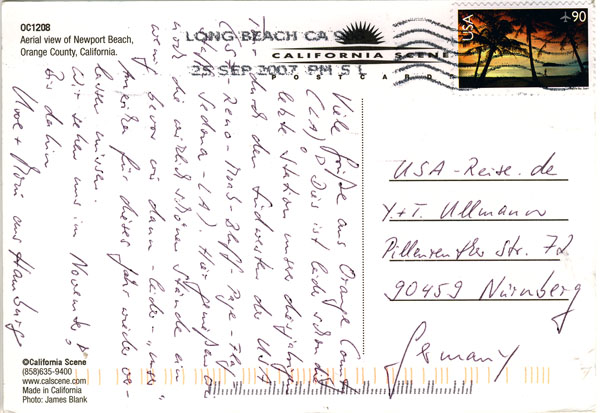 OC1208
Aerial view of Newport Beach,
Orange County, California.
LONG BEACH CA
25 SEP 2007 PM 5 L
CALIFORNIA SCENE
POSTCARDS
USA
90
Viele Grüße aus Orange County
(CA)! Dies ist leider schon die
letzte Station unserer diesjährigen
durch den Südwesten der USA
Reno - Page - Flag
Sedona - LA). Hier genießen wir
noch die wirklich schönen Strände ein
wenig, bevor wir dann - leider - "unser"
Amerika für dieses Jahr wieder ver-
lassen müssen.
Wir sehen uns im November,
Bis dahin
Uwe + aus Hamburg
USA-Reise.de
Y.+T. Ullmann
Pillenreuther Str. 72
90459 Nürnberg
Germany
©California Scene
(858)635-9400
www.calscene.com
Made in California
Photo: James Blank